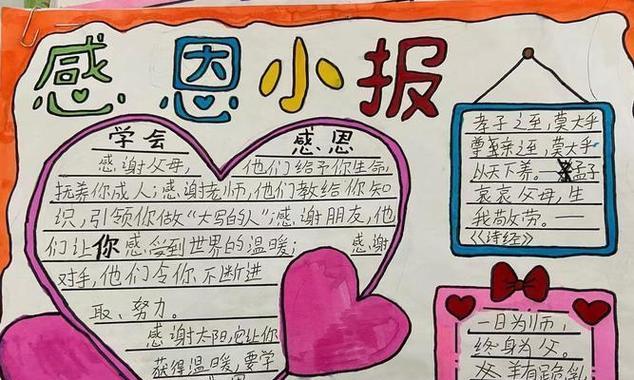 感恩小报
学会 感恩
感谢父母, 他们给予你生命,
抚养你成人;感谢老师,他们教给你知
识,引领你做“大写的人”;感谢朋友,他
们让你感受到世界的温暖; 感谢
对手,他们令你不断进
取、努力。
感谢太阳,它让你
获得温暖,要学
孝子之至,莫大乎
尊亲之至,莫大乎
以天下养。 孟子
哀哀父母,生
我劬劳。——
《诗经》
一日为师,
终身为父。
羊有跪乳